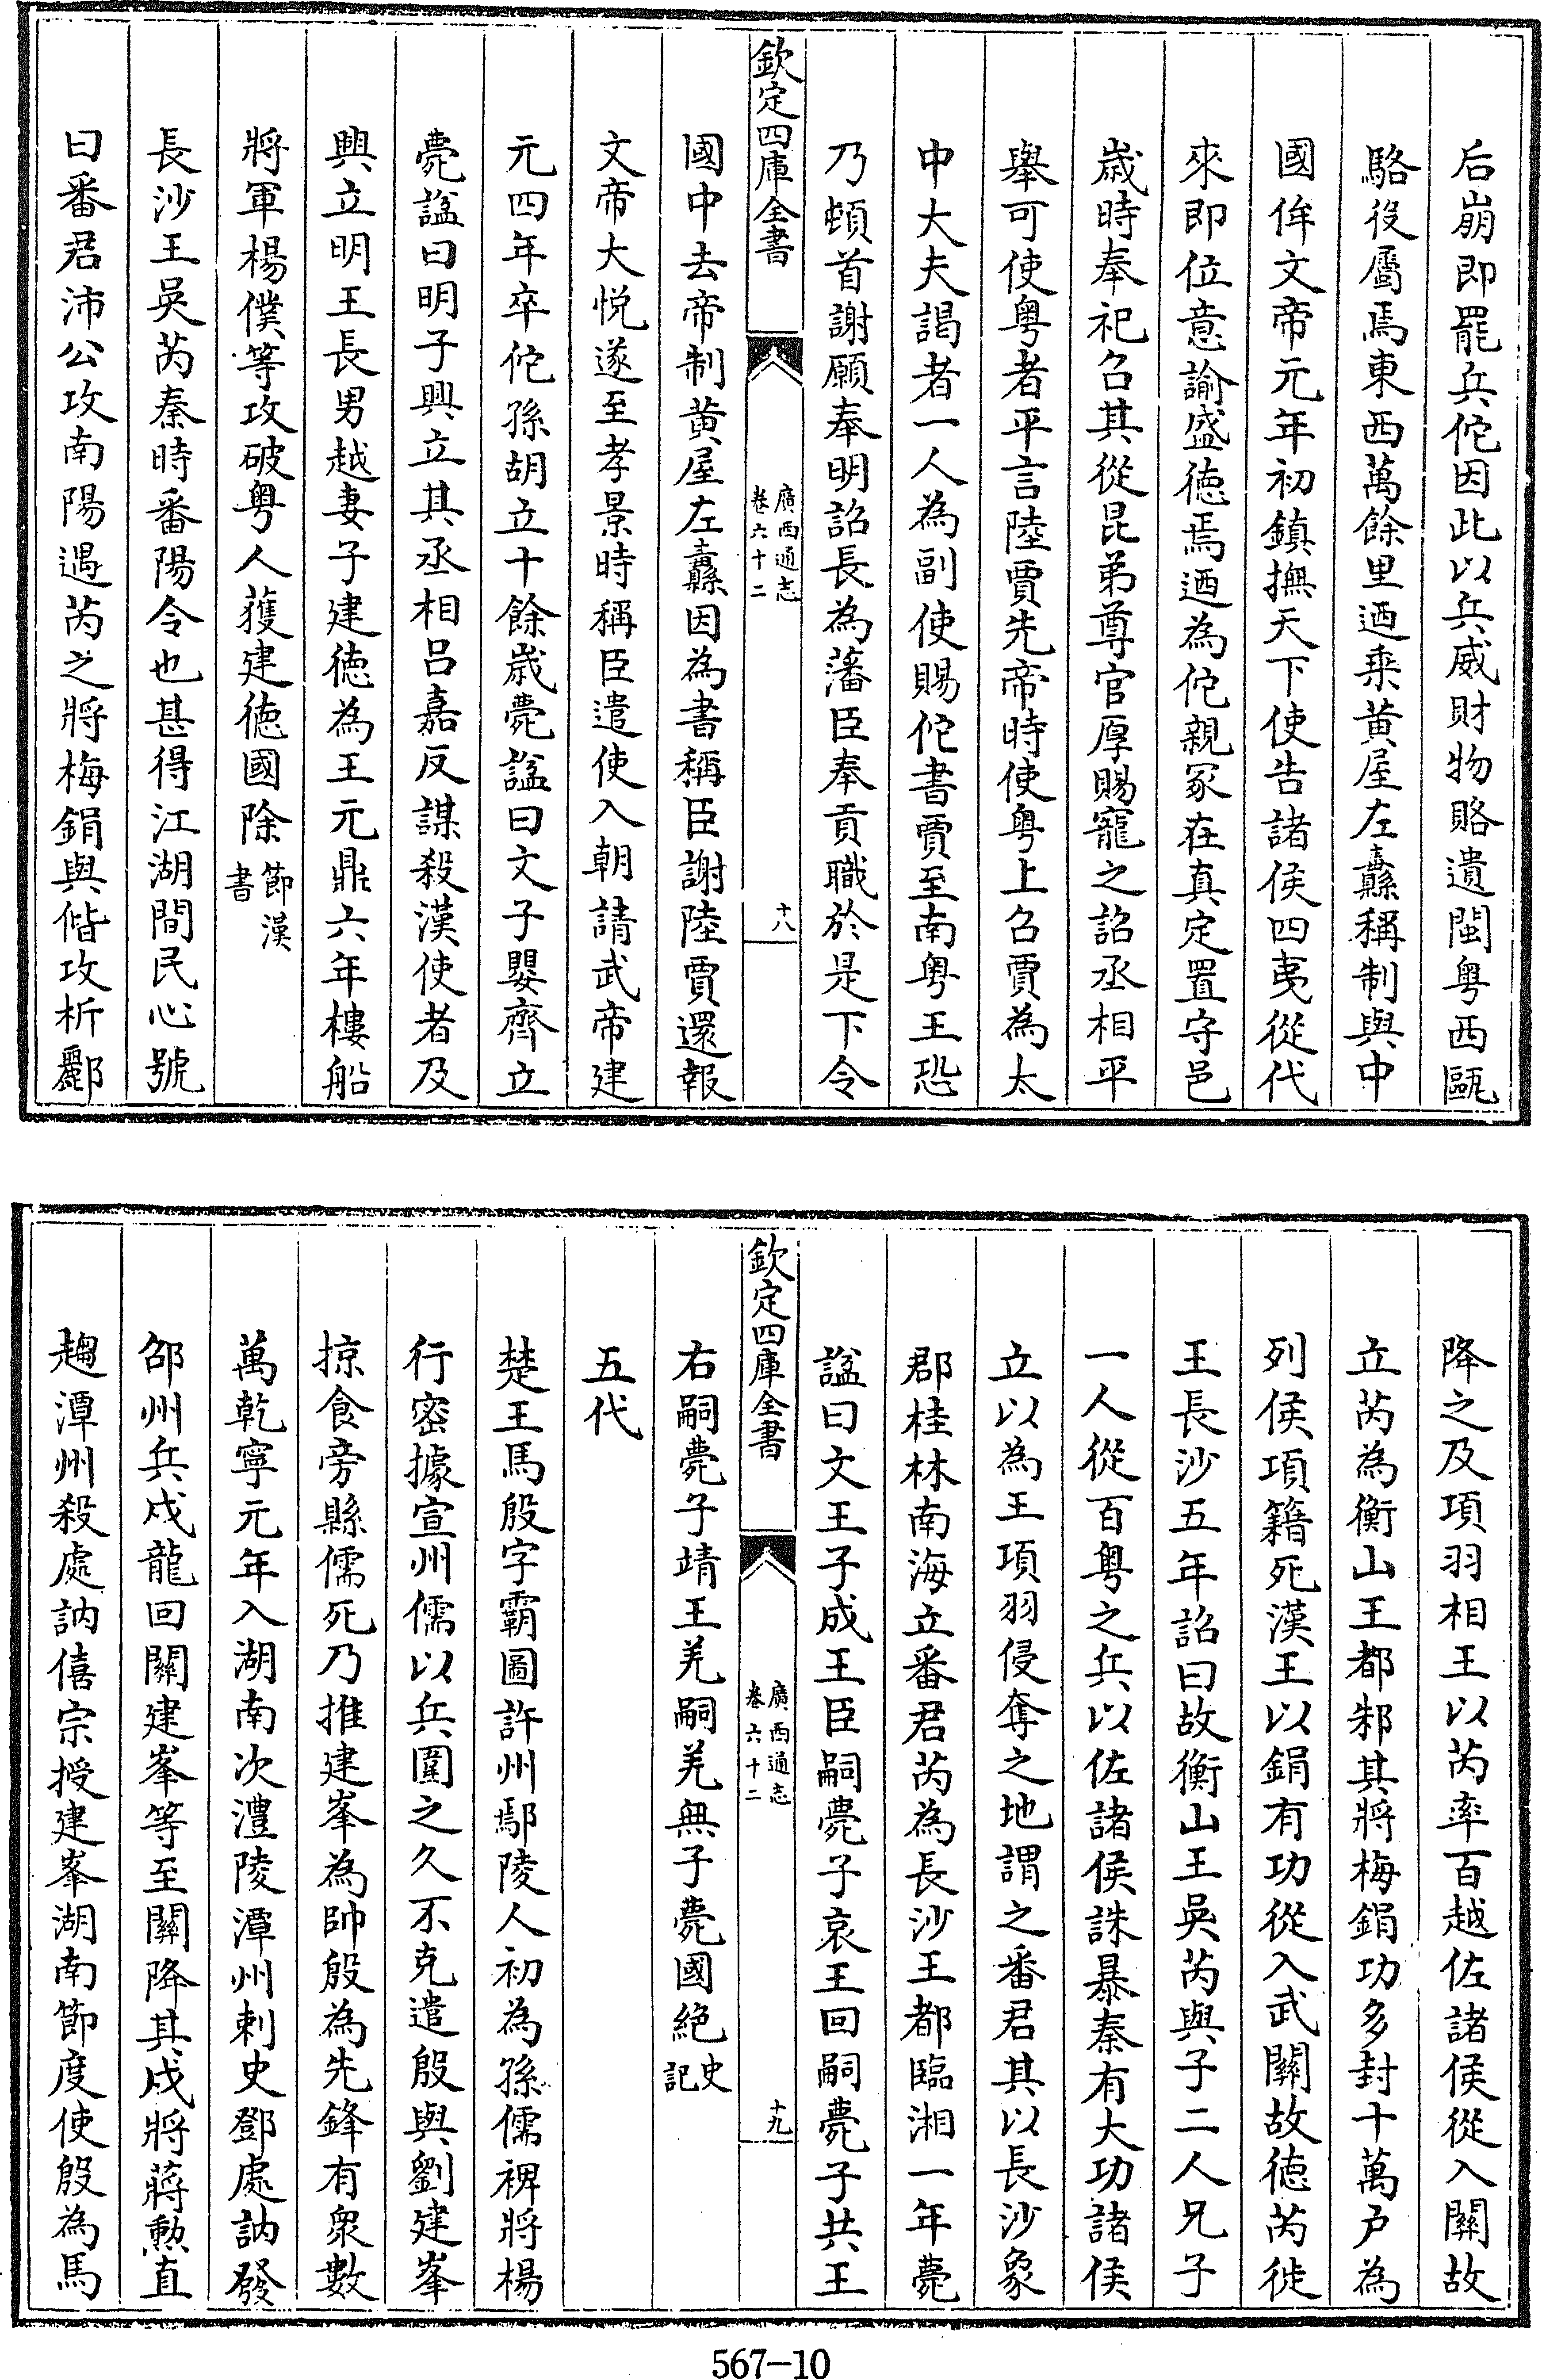 后崩即罷兵佗因此以兵威財物賂遺閩粤西甌
駱役屬焉東西萬餘里迺乘黄屋左纛稱制與中
國侔文帝元年初鎮撫天下使告諸侯四夷從代
來即位意諭盛徳焉迺為佗親冢在真定置守邑
歳時奉祀召其從昆弟尊官厚賜寵之詔丞相平
舉可使粤者平言陸賈先帝時使粤上召賈為太
中大夫謁者一人為副使賜佗書賈至南粤王恐
乃頓首謝願奉明詔長為藩臣奉貢職於是下令
欽定四庫全書
廣西通志
卷六十二
十八
國中去帝制黄屋左纛因為書稱臣謝陸賈還報
文帝大悦遂至孝景時稱臣遣使入朝請武帝建
元四年卒佗孫胡立十餘歳薨諡曰文子嬰齊立
薨諡曰明子興立其丞相吕嘉反謀殺漢使者及
興立明王長男越妻子建徳為王元鼎六年樓船
將軍楊僕等攻破粤人獲建徳國除節漢
書
長沙王吳芮秦時番陽令也甚得江湖間民心號
曰番君沛公攻南陽遇芮之將梅鋗與偕攻析酈
降之及項羽相王以芮率百越佐諸侯從入關故
立芮為衡山王都邾其將梅鋗功多封十萬户為
列侯項籍死漢王以鋗有功從入武關故徳芮徙
王長沙五年詔曰故衡山王吳芮與子二人兄子
一人從百粤之兵以佐諸侯誅暴秦有大功諸侯
立以為王項羽侵奪之地謂之番君其以長沙象
郡桂林南海立番君芮為長沙王都臨湘一年薨
諡曰文王子成王臣嗣薨子哀王回嗣薨子共王
欽定四庫全書
廣西通志
卷六十二
十九
右嗣薨子靖王羌嗣羌無子薨國絶史
記
五代
楚王馬殷字霸圖許州鄢陵人初為孫儒裨將楊
行密據宣州儒以兵圍之久不克遣殷與劉建峯
掠食旁縣儒死乃推建峯為帥殷為先鋒有衆數
萬乾寧元年入湖南次澧陵潭州刺史鄧處訥發
邵州兵戍龍回關建峯等至關降其戍將蔣勲直
趨潭州殺處訥僖宗授建峯湖南節度使殷為馬
567-10